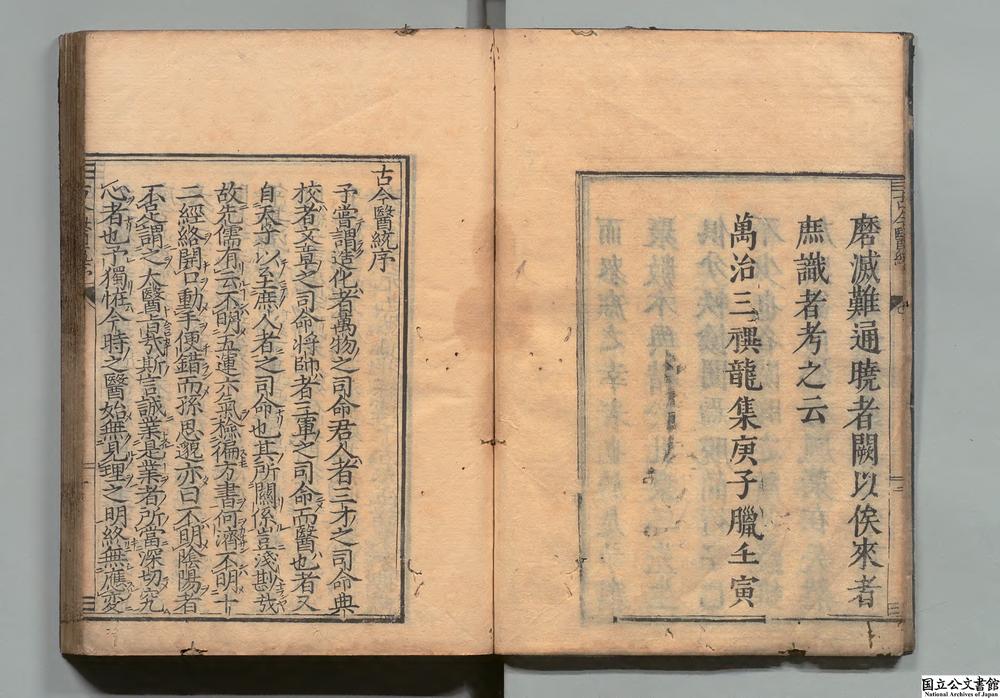 磨滅難通曉者闕以俟來者
庶識者考之云
萬治三禩龍集庚子臘壬寅
古今醫統序
予嘗謂造化者萬物之司命君人者三才之司命典
校者文章之司命將帥者三軍之司命而醫也者又
自天子以至庶人者之司命也其所關係豈淺尠哉
故先儒有云不明五運六氣檢徧方書何濟不明十
二經絡開口動手便錯而孫思邈亦曰不明陰陽者
不足謂之大醫旨哉斯言誠業是業者所當深切究
心者也予獨怪今時之醫始無見理之明終無應變
国立公文書館
National Archives of Japan